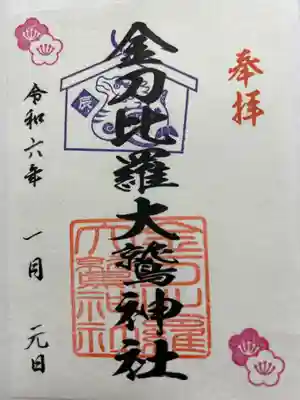 奉拝
辰
金刀比羅大鷲神社
令和六年 一月 元日